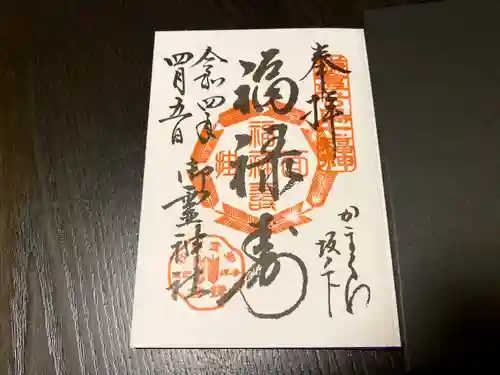 奉拝
かまくら
坂ノ下
福禄寿
御霊神社
令和四年
四月五日